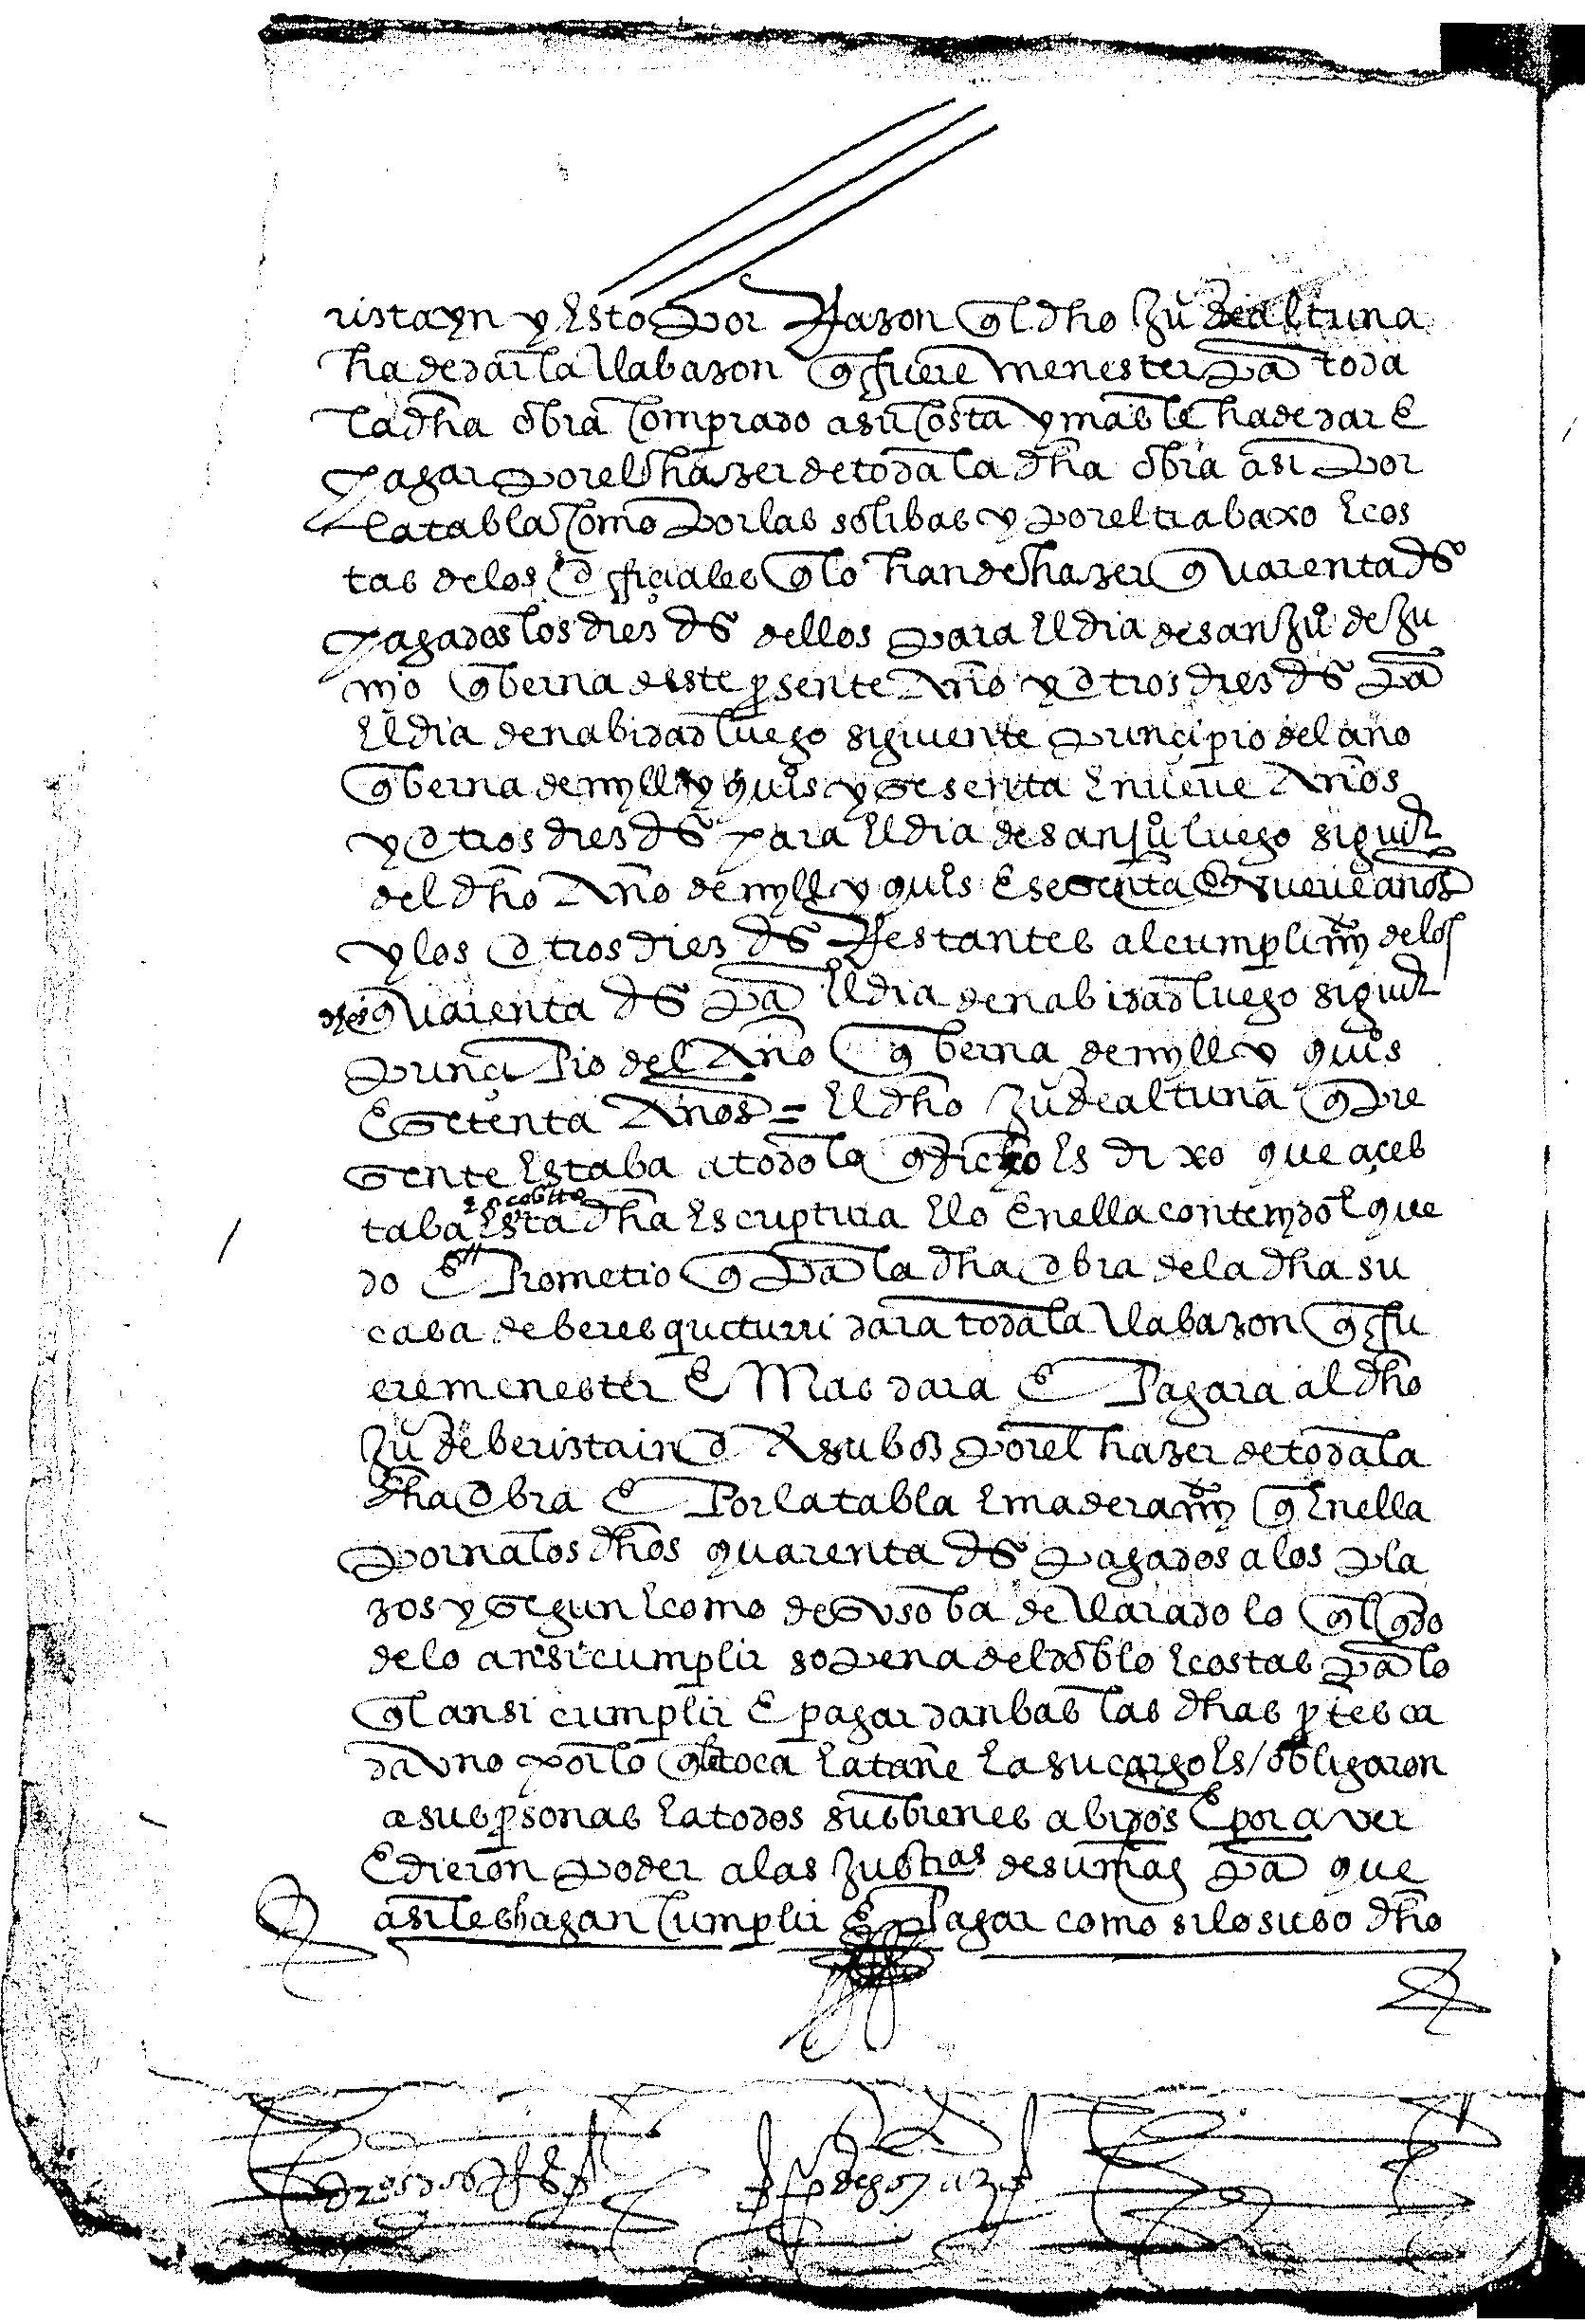 ristayn y esto por Razon ql dho Ju de altuna
ha de dar la llabazon q fuere menester pa toda
la dha obra comprado a su costa y mas le ha de dar e
pagar por el hazer de toda la dha obra asi por
la tabla como por las solibas y por el trabaxo e cos
tas de los officiales q lo han de hazer quarenta ds
pagados los diez ds dellos para el dia de san Juo de Ju
nyo q berna deste psente Año y otros diez ds pa
el dia de nabidad luego siguiente principio del año
q berna de myll y quis y sesenta e nueve Años
y otros diez ds para el dia de san juo luego siguite
del dho Año de myll y quis e sesenta e nueve años
y los otros diez ds Restantes al cumplimyo de los
dhos quarenta ds pa el dia de nabidad luego siguite
principio del Año q berna de myll y quis
e setenta Años = el dho Ju de altuna q pre
sente estaba a todo lo q dicho es dixo que aceb
taba esta dha escriptura e lo en ella contenydo e que
do e prometio q pa la dha obra de la dha su
casa de beresqueturri dara toda la llabazon q fu
ere menester e Mas dara e Pagara al dho
Ju de beristain o A su boz por el hazer de toda la
dha obra e Por la tabla e maderamyo q en ella
porna los dhos quarenta ds pagados a los pla
zos y segun e como de suso ba declarado lo ql qdo
de lo ansi cumplir so pena del doblo e costas pa lo
ql ansi cumplir e pagar danbas las dhas ptes ca
da uno por lo q le toca e atañe e a su cargo es / obligaron
a sus psonas e a todos sus bienes abidos e por aver
e dieron poder a las Justias de su mag pa que
asi les hagan cumplir e Pagar como si lo suso dho